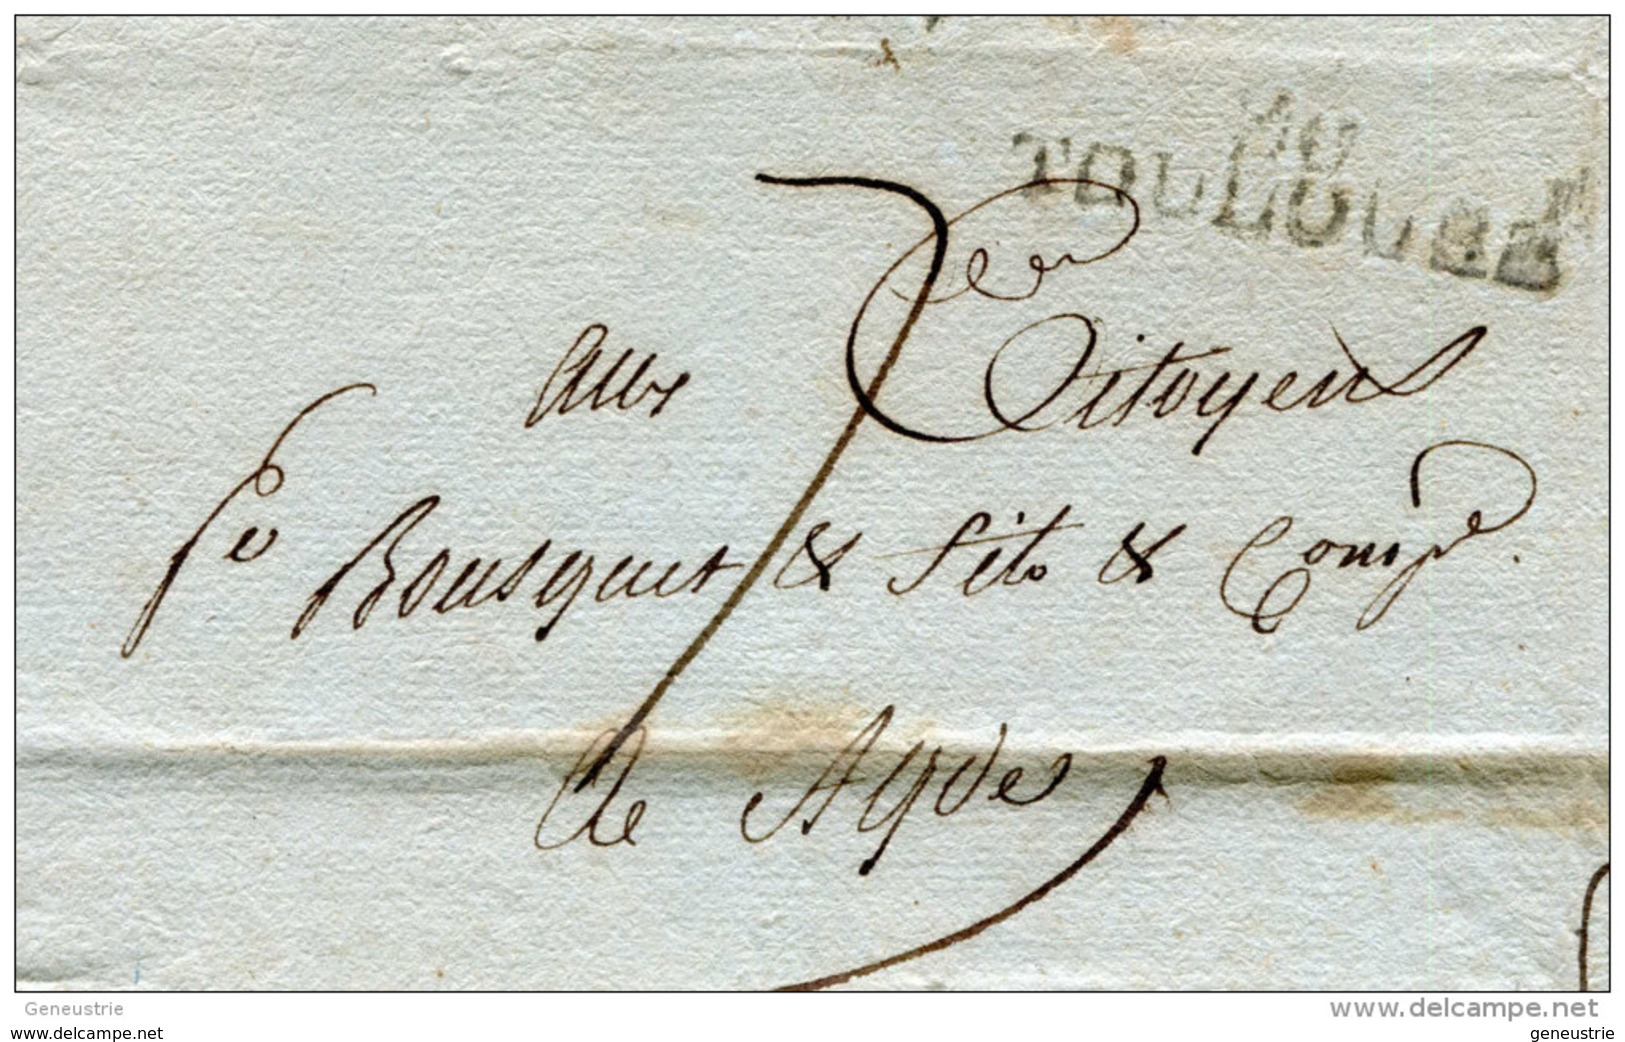 30
TOULOUSE
7
Aux Citoyens
Bousquet & fils & Comp.e
de Agde
Geneustrie
www.delcampe.net
www.delcampe.net
geneustrie